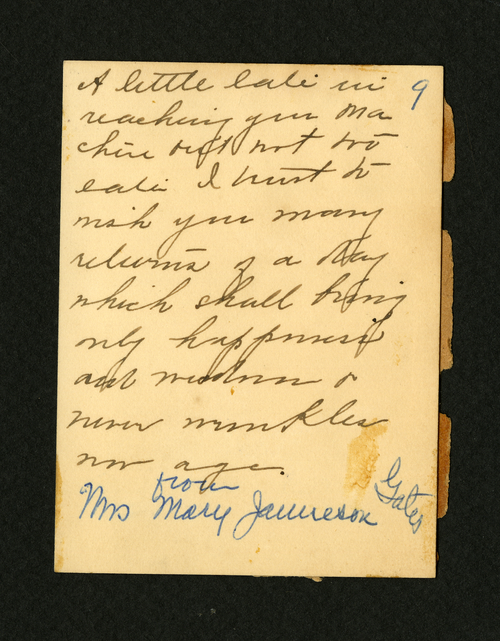 A little late in
9
reaching you Ma
chère but not too
late I trust to
wish you many
returns of a day
which shall bring
only happiness
and wisdom &
never wrinkles
nor age.
from
Mrs Mary Jamieson
Gates